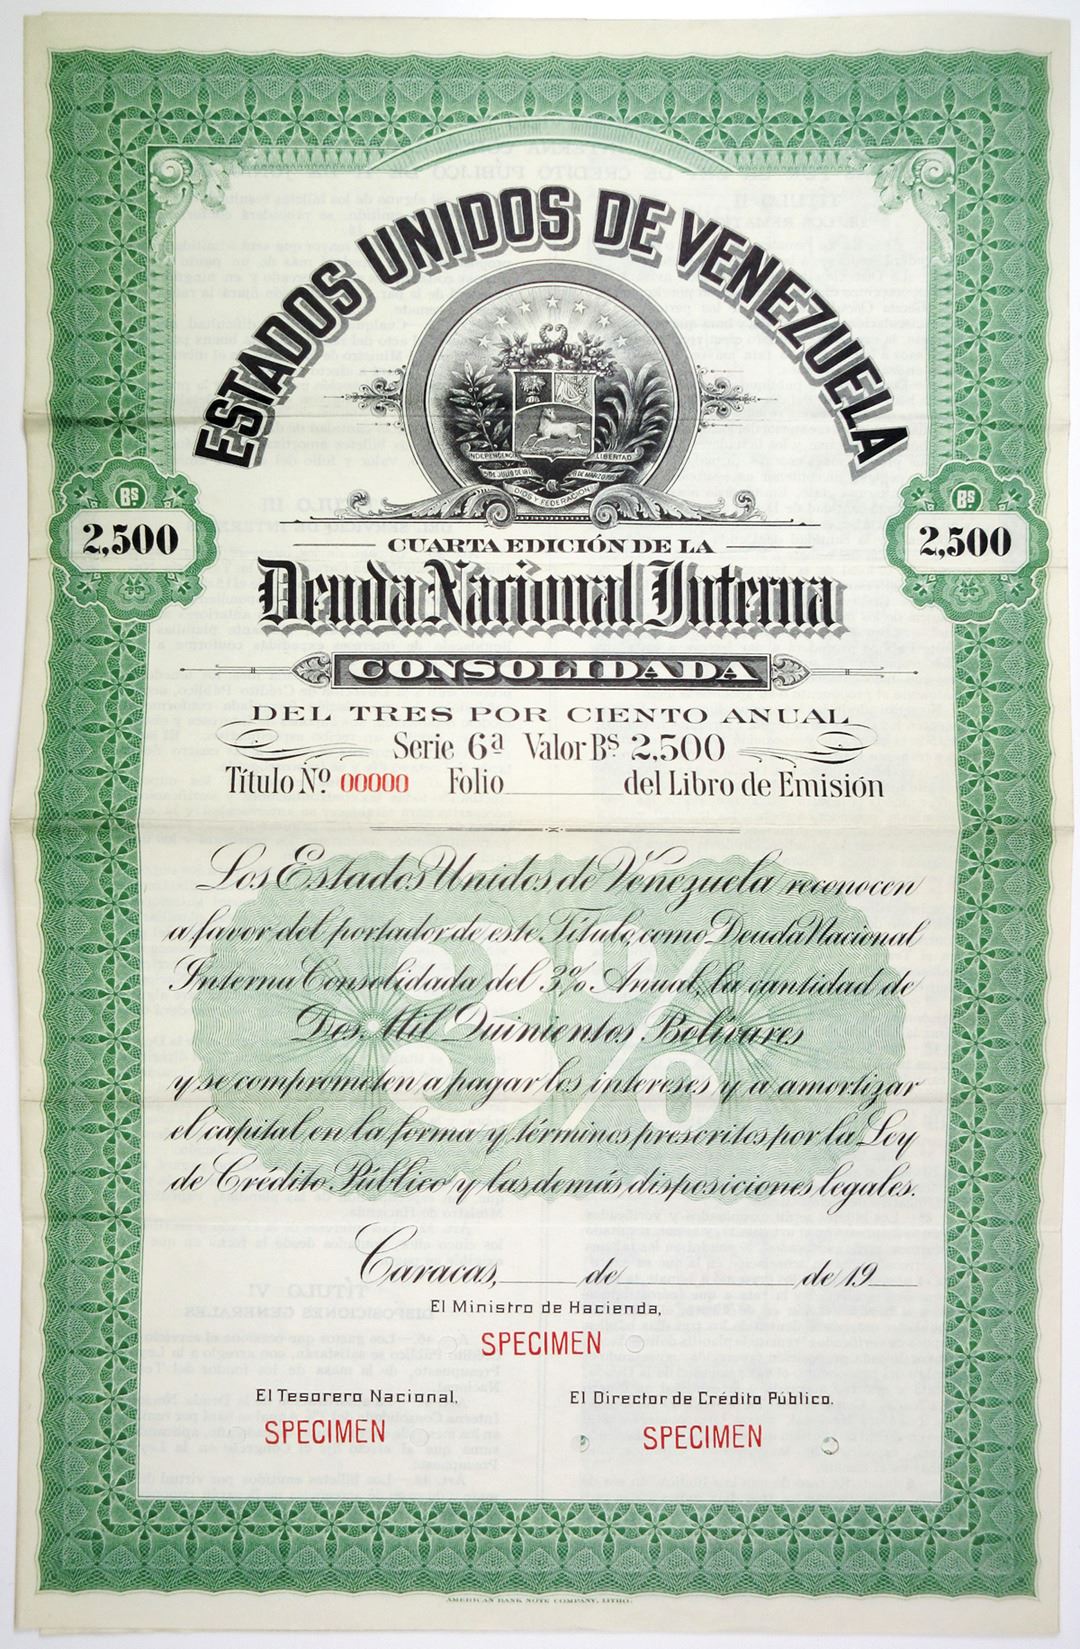 ESTADOS UNIDOS DE VENEZUELA
INDEPENDENCIA LIBERTAD
5 DE JULIO DE 1811
DIOS Y FEDERACION
Bs. 2,500
Bs. 2,500
CUARTA EDICIÓN DE LA
Deuda Nacional Interna
CONSOLIDADA
DEL TRES POR CIENTO ANUAL
Serie 6ª Valor Bs 2,500
Título Nº 00000 Folio del Libro de Emisión
3%
Los Estados Unidos de Venezuela reconocen
a favor del portador de este Título, como Deuda Nacional
Interna Consolidada del 3% Anual, la cantidad de
Dos Mil Quinientos Bolívares
y se comprometen a pagar los intereses y a amortizar
el capital en la forma y términos prescritos por la Ley
de Crédito Público y las demás disposiciones legales.
Caracas, de de 19
El Ministro de Hacienda,
SPECIMEN
El Tesorero Nacional, El Director de Crédito Público.
SPECIMEN SPECIMEN
AMERICAN BANK NOTE COMPANY, LITHO.